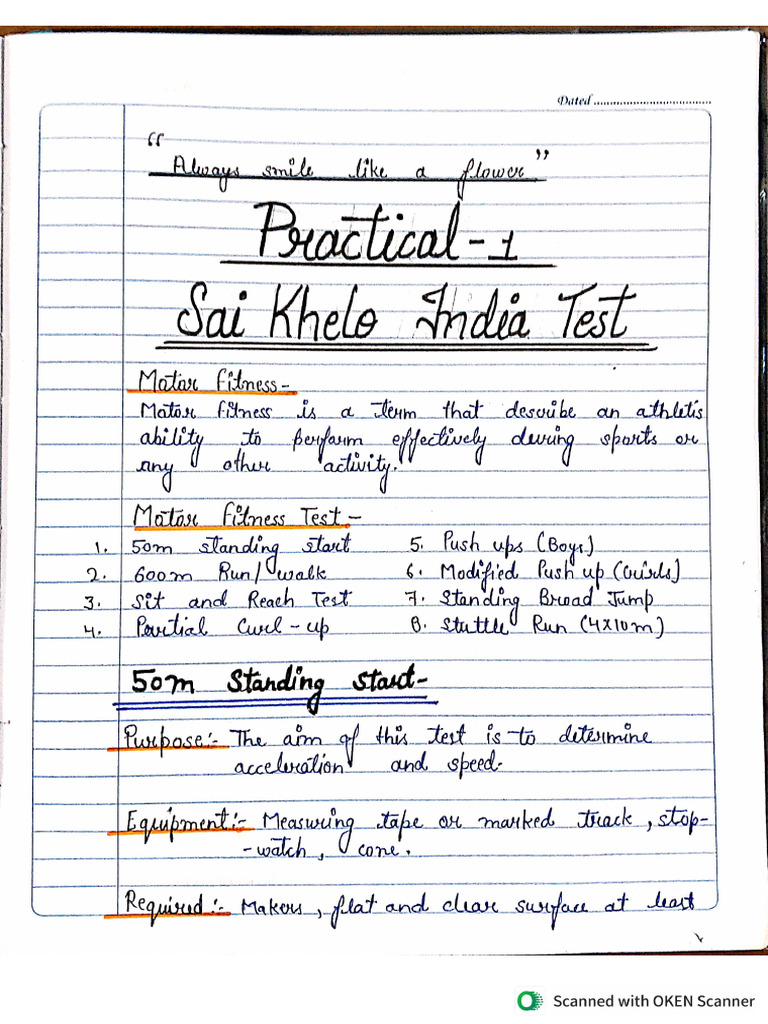 Dated
“Always smile like a flower”
Practical-1
Sai Khelo India Test
Motor Fitness-
Motor fitness is a term that describe an athletis
ability to perform effectively during sports or
any other activity.
Motor Fitness Test-
1. 50m standing start 5. Push ups (Boys)
2. 600m Run/walk 6. Modified Push up (Girls)
3. Sit and Reach Test 7. Standing Broad Jump
4. Partial Curl-up 8. Stuttle Run (4x10m)
50m Standing Start-
Purpose:- The aim of this test is to determine
acceleration and speed.
Equipment:- Measuring tape or marked track, stop-
-watch, cone.
Required:- Makers, flat and clear surface at least
Scanned with OKEN Scanner